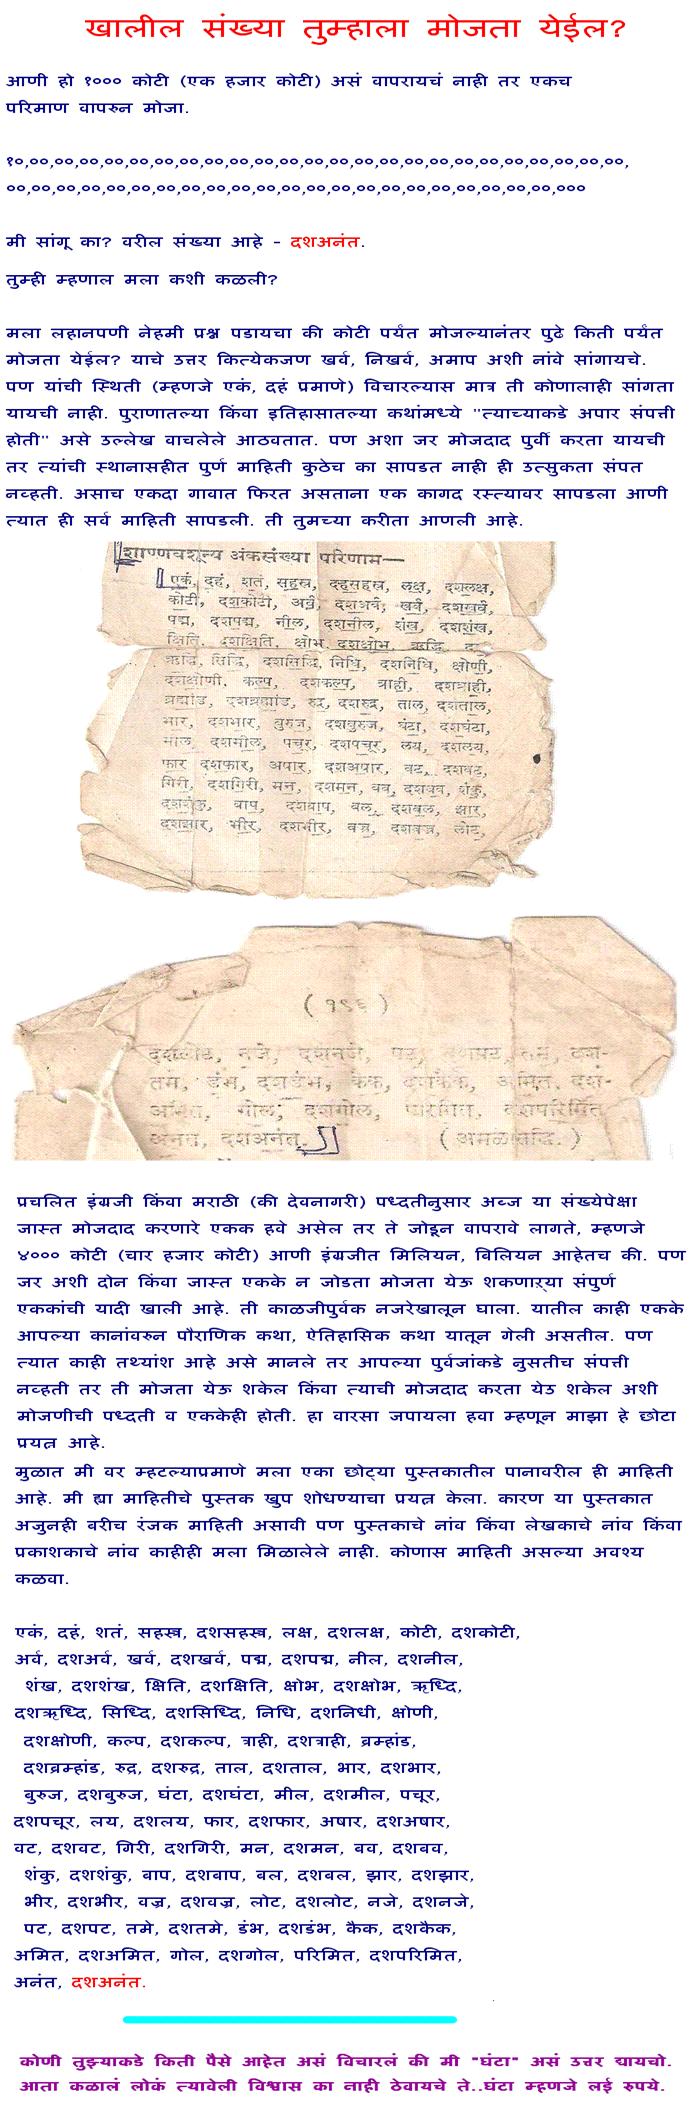 खालील संख्या तुम्हाला मोजता येईल?
आणी हो १००० कोटी (एक हजार कोटी) असं वापरायचं नाही तर एकच
परिमाण वापरुन मोजा.
१०,००,००,००,००,००,००,००,००,००,००,००,००,००,००,००,००,००,००,००,००,००,००,००,००,
००,००,००,००,००,००,००,००,००,००,००,००,००,००,००,००,००,००,००,००,००,००,०००
मी सांगू का? वरील संख्या आहे - दशअनंत.
तुम्ही म्हणाल मला कशी कळली?
मला लहानपणी नेहमी प्रश्न पडायचा की कोटी पर्यंत मोजल्यानंतर पुढे किती पर्यंत
मोजता येईल? याचे उत्तर कित्येकजण खर्व, निखर्व, अमाप अशी नांवे सांगायचे.
पण यांची स्थिती (म्हणजे एकं, दहं प्रमाणे) विचारल्यास मात्र ती कोणालाही सांगता
यायची नाही. पुराणातल्या किंवा इतिहासातल्या कथांमध्ये "त्याच्याकडे अपार संपत्ती
होती" असे उल्लेख वाचलेले आठवतात. पण अशा जर मोजदाद पुर्वी करता यायची
तर त्यांची स्थानासहीत पुर्ण माहिती कुठेच का सापडत नाही ही उत्सुकता संपत
नव्हती. असाच एकदा गावात फिरत असताना एक कागद रस्त्यावर सापडला आणी
त्यात ही सर्व माहिती सापडली. ती तुमच्या करीता आणली आहे.
शाण्णवशून्य अंकसंख्या परिणाम—
एकं, दहं, शतं, सहस्र, दहसहस्र, लक्ष, दशलक्ष,
कोटी, दशकोटी, अर्व, दशअर्व, खर्व, दशखर्व,
पद्म, दशपद्म, नील, दशनील, शंख, दशशंख,
क्षिति, दशक्षिति, क्षोभ, दशक्षोभ, ऋद्धि, द
ऋद्धि, सिद्धि, दशसिद्धि, निधि, दशनिधि, क्षोणी,
दशक्षोणी, कल्प, दशकल्प, त्राही, दशत्राही,
ब्रह्मांड, दशब्रह्मांड, रुद्र, दशरुद्र, ताल, दशताल,
भार, दशभार, बुरुज, दशबुरुज, घंटा, दशघंटा,
मील, दशमील, पचूर, दशपचूर, लय, दशलय,
फार दशफार, अषार, दशअषार, वट, दशवट,
गिरी, दशगिरी, मन, दशमन, वव, दशवव, शंकु,
दशशंकु, वाप, दशवाप, बल, दशबल, झार,
दशझार, भीर, दशभीर, वज्र, दशवज्र, लोट,
( १९६ )
दशलोट, नजे, दशनजे, पट, दशपट, तमे, दश-
तमे, डंभ, दशडंभ, कैक, दशकैक, अमित, दश-
अमित, गोल, दशगोल, परिमित, दशपरिमित
अनंत, दशअनंत.
प्रचलित इंग्रजी किंवा मराठी (की देवनागरी) पध्दतीनुसार अब्ज या संख्येपेक्षा
जास्त मोजदाद करणारे एकक हवे असेल तर ते जोडून वापरावे लागते, म्हणजे
४००० कोटी (चार हजार कोटी) आणी इंग्रजीत मिलियन, विलियन आहेतच की. पण
जर अशी दोन किंवा जास्त एकके न जोडता मोजता येऊ शकणाऱ्या संपुर्ण
एककांची यादी खाली आहे. ती काळजीपुर्वक नजरेखालून घाला. यातील काही एकके
आपल्या कानांवरुन पौराणिक कथा, ऐतिहासिक कथा यातून गेली असतील. पण
त्यात काही तथ्यांश आहे असे मानले तर आपल्या पुर्वजांकडे नुसतीच संपत्ती
नव्हती तर ती मोजता येऊ शकेल किंवा त्याची मोजदाद करता येउ शकेल अशी
मोजणीची पध्दती व एककेही होती. हा वारसा जपायला हवा म्हणून माझा हे छोटा
प्रयत्न आहे.
मुळात मी वर म्हटल्याप्रमाणे मला एका छोट्या पुस्तकातील पानावरील ही माहिती
आहे. मी ह्या माहितीचे पुस्तक खुप शोधण्याचा प्रयत्न केला. कारण या पुस्तकात
अजुनही बरीच रंजक माहिती असावी पण पुस्तकाचे नांव किंवा लेखकाचे नांव किंवा
प्रकाशकाचे नांव काहीही मला मिळालेले नाही. कोणास माहिती असल्या अवश्य
कळवा.
एकं, दहं, शतं, सहस्त्र, दशसहस्त्र, लक्ष, दशलक्ष, कोटी, दशकोटी,
अर्व, दशअर्व, खर्व, दशखर्व, पद्म, दशपद्म, नील, दशनील,
शंख, दशशंख, क्षिति, दशक्षिति, क्षोभ, दशक्षोभ, ऋध्दि,
दशऋध्दि, सिध्दि, दशसिध्दि, निधि, दशनिधी, क्षोणी,
दशक्षोणी, कल्प, दशकल्प, त्राही, दशत्राही, ब्रम्हांड,
दशब्रम्हांड, रुद्र, दशरुद्र, ताल, दशताल, भार, दशभार,
बुरुज, दशबुरुज, घंटा, दशघंटा, मील, दशमील, पचूर,
दशपचूर, लय, दशलय, फार, दशफार, अषार, दशअषार,
वट, दशवट, गिरी, दशगिरी, मन, दशमन, वव, दशवव,
शंकु, दशशंकु, वाप, दशवाप, बल, दशबल, झार, दशझार,
भीर, दशभीर, वज्र, दशवज्र, लोट, दशलोट, नजे, दशनजे,
पट, दशपट, तमे, दशतमे, डंभ, दशडंभ, कैक, दशकैक,
अमित, दशअमित, गोल, दशगोल, परिमित, दशपरिमित,
अनंत, दशअनंत.
कोणी तुझ्याकडे किती पैसे आहेत असं विचारलं की मी "घंटा" असं उत्तर द्यायचो.
आता कळालं लोकं त्यावेली विश्वास का नाही ठेवायचे ते..घंटा म्हणजे लई रुपये.